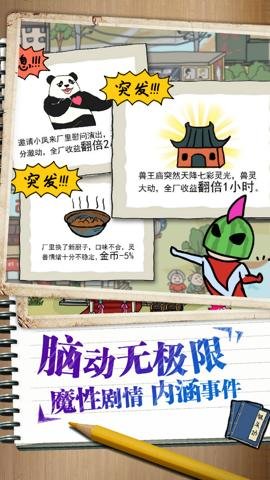 息!!!
突发!!!
邀请小凤来厂里慰问演出,
分激动,全厂收益翻倍2
突发!!!
厂里换了新厨子,口味不合,灵
兽情绪十分不稳定,金币-5%
兽王庙突然天降七彩灵光,兽灵
大动,全厂收益翻倍1小时。
脑动无极限
魔性剧情 内涵事件